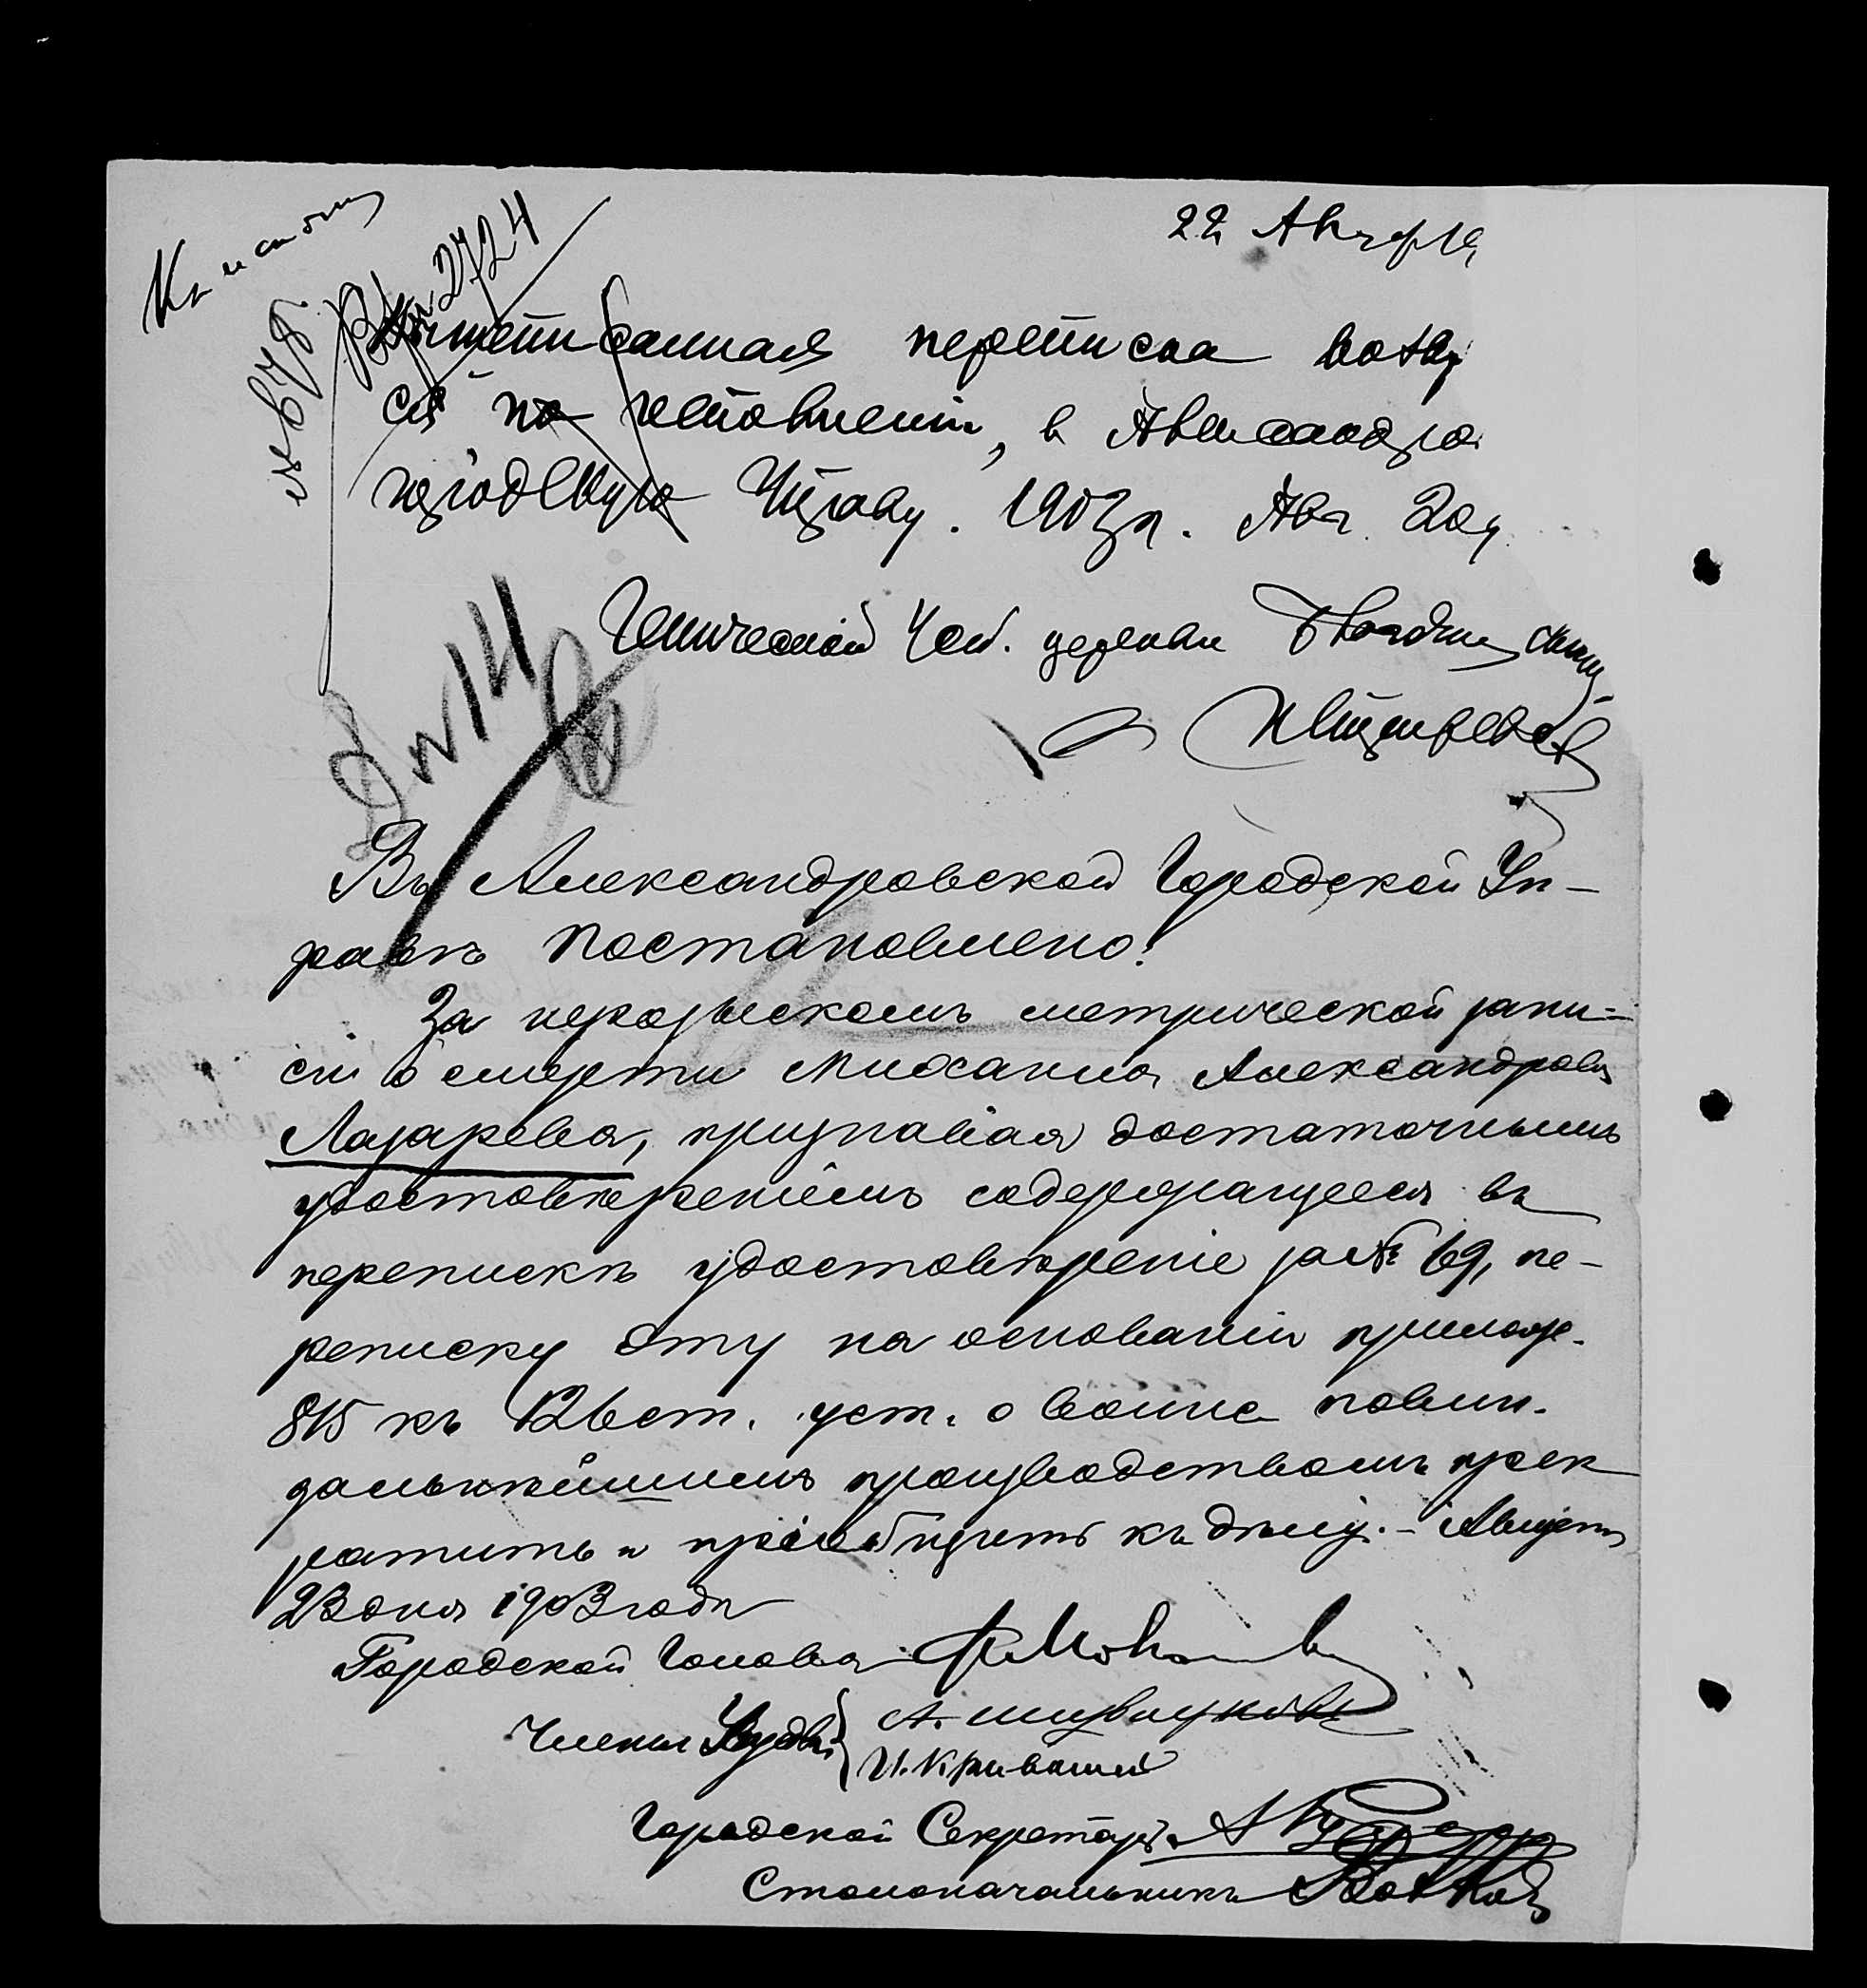 22 Августа
№ 2724
Вышеписанная переписка возвр
ся по исполнении, в Александро
городскую Управу. 1903 г. Авг. 20 д.
Генической церкви
№ 14
Въ Александровской Городской Уп-
равѣ постановлено:
За нерозыскомъ метрической запи-
си о смерти Михаила Александрова
Лазарева, признавая достаточнымъ
удостовѣреніемъ содержащееся въ
перепискѣ удостовѣреніе за № 69, пе-
реписку эту на основаніи прилож.
815 къ 126 ст. уст. о воинс повин.
дальнѣйшимъ производствомъ прек
ратить и пріобщить къ дѣлу. - Августа
23 дня 1903 года
Городской Голова
Члены Управы
И. Кривошей
Городской Секретарь
Столоначальникъ